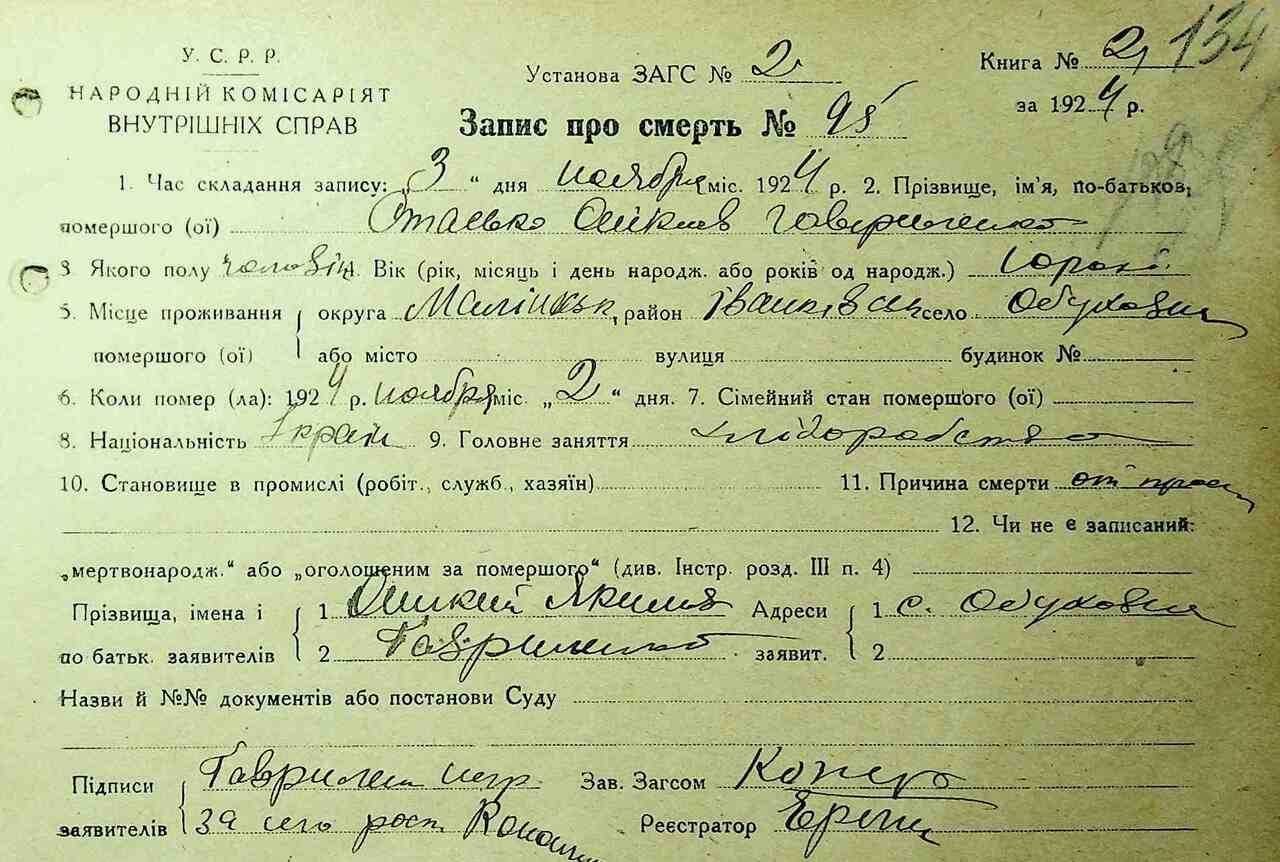 134
У. С. Р. Р.
НАРОДНІЙ КОМІСАРІЯТ
ВНУТРІШНІХ СПРАВ
Установа ЗАГС № 2
Книга № 2,
за 1924 р.
Запис про смерть № 95
1. Час складання запису: „3“ дня ноября міс. 1924 р. 2. Прізвище, ім'я, по-батьков,
помершого (ої) Гавриленко
3. Якого полу чоловіч. Вік (рік, місяць і день народж. або років од народж.)
5. Місце проживання округа Малінськ, район Іванківськ село Обуховичі
помершого (ої) або місто вулиця будинок №
6. Коли помер (ла): 1924 р. ноября міс. „2“ дня. 7. Сімейний стан померш'ого (ої)
8. Національність Украін 9. Головне заняття хліборобство
10. Становище в промислі (робіт., служб., хазяїн) 11. Причина смерти от
12. Чи не є записаний:
„мертвонародж.“ або „оголошеним за помершого“ (див. Інстр. розд. III п. 4)
Прізвища, імена і 1 Якимов Адреси 1 с. Обуховичі
по батьк. заявителів 2 Гавриленко заявит. 2
Назви й №№ документів або постанови Суду
Підписи Гаврилен Зав. Загсом
заявителів За сего рост Реєстратор